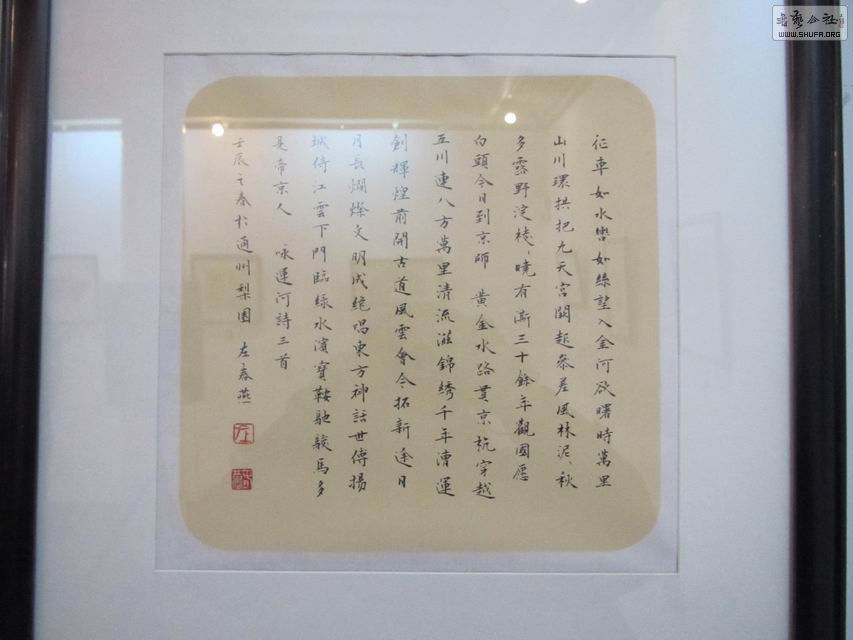 征車如水轡如絲望入金河欲曙時萬里
山川環拱把九天宮闕起參差風林泥、秋
多露野淀棱、曉有澌三十餘年觀國愿
白頭今日到京師 黃金水路貫京杭穿越
五川連八方萬里清流滋錦綉千年漕運
創輝煌前開古道風雲會今拓新途日
月長爛燦文明成絶唱東方神話世傳揚
城倚江雲下門臨緑水濱寶鞍馳駿馬多
是帝京人 咏運河詩三首
壬辰之春於通州梨園 左春燕
書藝公社
WWW.SHUFA.ORG